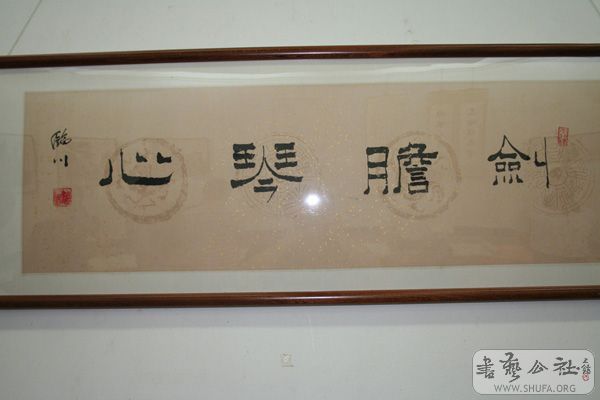 劍膽琴心
臨川
書藝公社
WWW.SHUFA.ORG